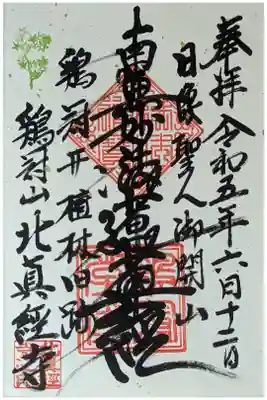 奉拝 令和五年六月十二日
日像聖人御開山
南無妙法蓮華経
鶏冠井檀林旧跡
鶏冠山北真経寺